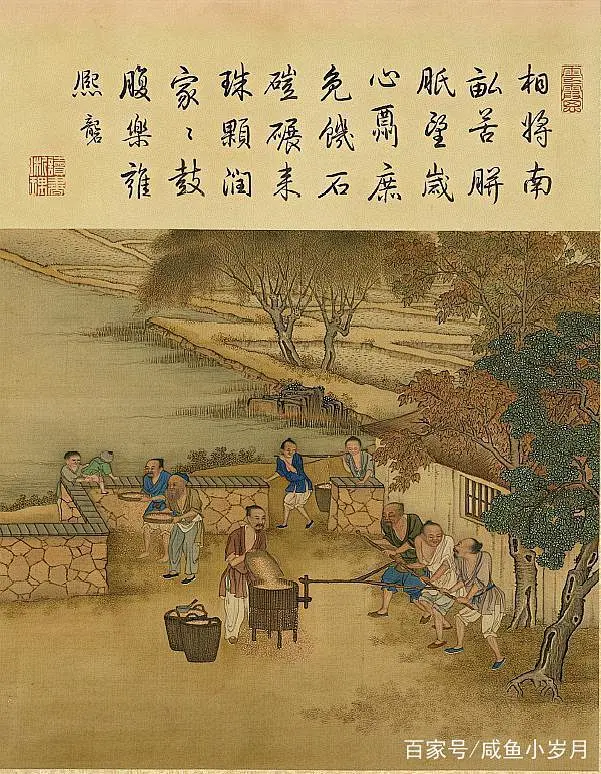 相將南
畝苦胼
胝望歲
心酬庶
免饑石
磑碾来
珠顆潤
家〻鼓
腹樂雍
熙 礱
百家号/咸鱼小岁月